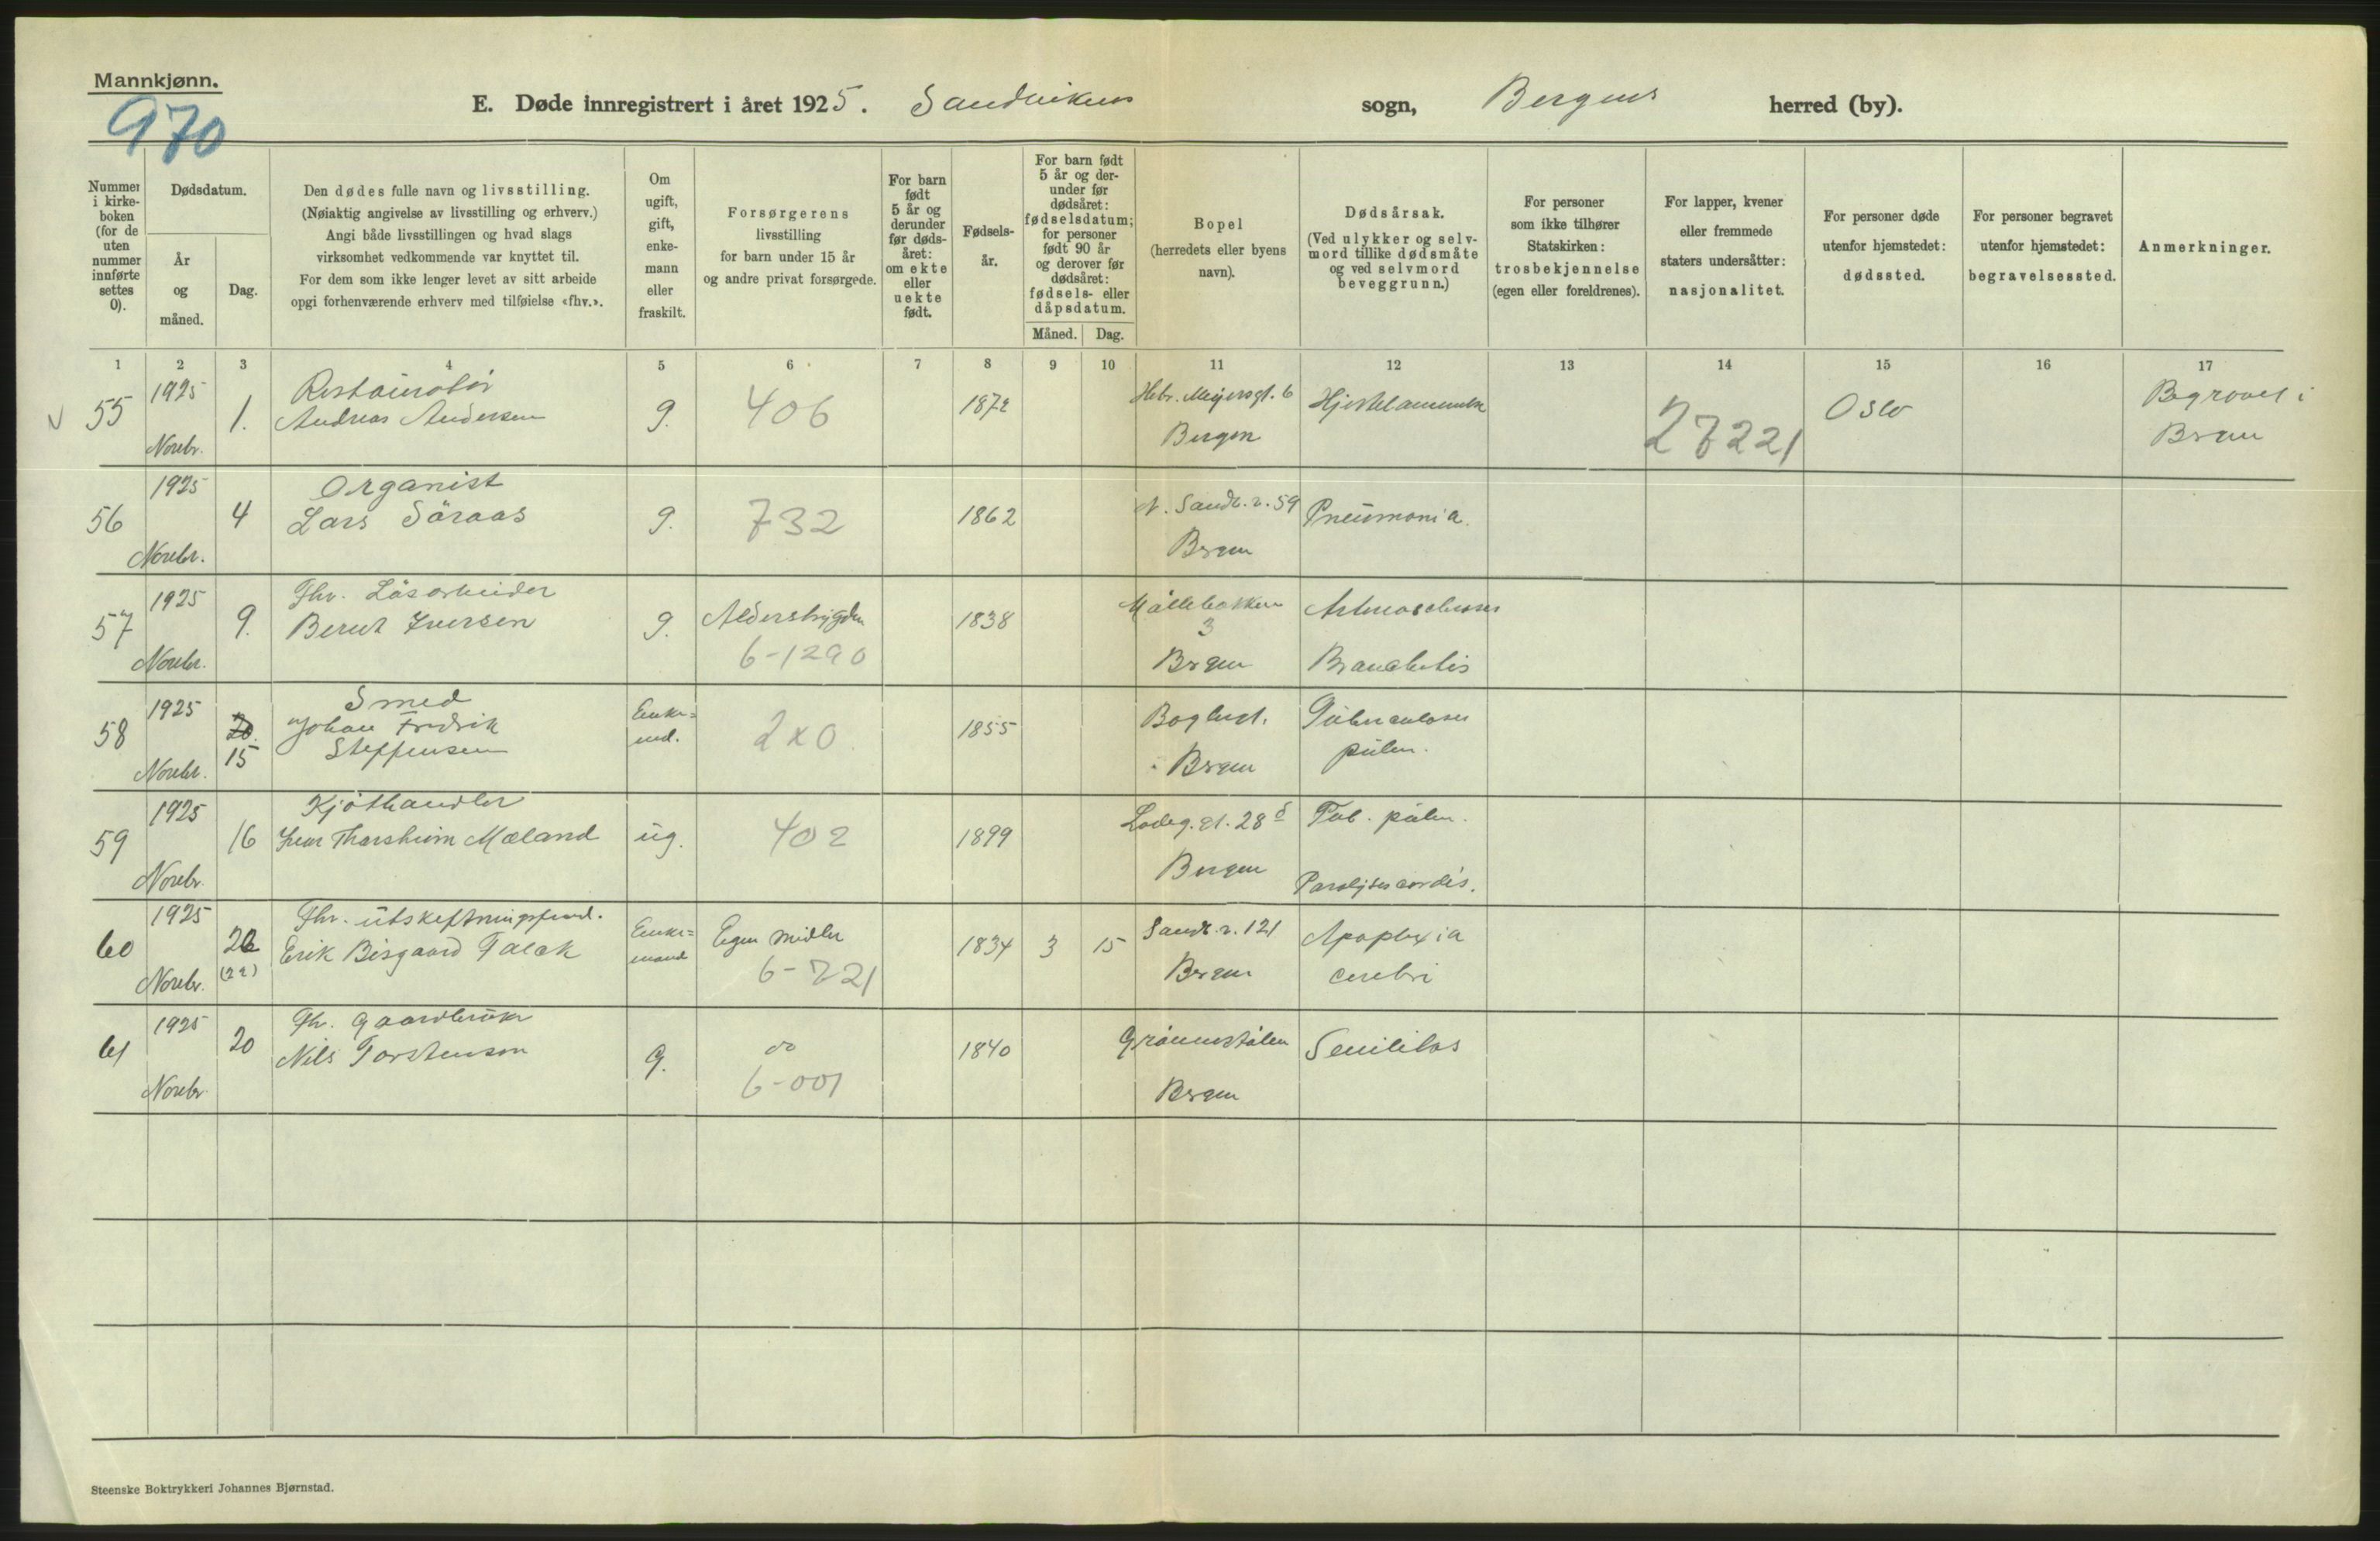 Mannkjønn.
970
E. Døde innregistrert i året 1925. Sandvikens sogn, Bergens herred (by).
Nummer i kirkeboken (for de uten nummer innførte settes 0).
Dødsdatum.
År og måned.
Dag.
Den dødes fulle navn og livsstilling.
(Nøiaktig angivelse av livsstilling og erhverv.)
Angi både livsstillingen og hvad slags
virksomhet vedkommende var knyttet til.
For dem som ikke lenger levet av sitt arbeide
opgi forhenværende erhverv med tilføielse «fhv.».
Om ugift, gift, enkemann eller fraskilt.
Forsørgerens
livsstilling
for barn under 15 år
og andre privat forsørgede.
For barn født 5 år og derunder før dødsåret: om ekte eller uekte født.
Fødselsår.
For barn født 5 år og derunder før dødsåret: fødselsdatum; for personer født 90 år og derover før dødsåret: fødsels- eller dåpsdatum.
Måned. Dag.
Bopel
(herredets eller byens
navn).
Dødsårsak.
(Ved ulykker og selvmord tillike dødsmåte og ved selvmord beveggrunn.)
For personer
som ikke tilhører
Statskirken:
trosbekjennelse
(egen eller foreldrenes).
For lapper, kvener
eller fremmede
staters undersåtter:
nasjonalitet.
For personer døde
utenfor hjemstedet:
dødssted.
For personer begravet
utenfor hjemstedet:
begravelsessted.
Anmerkninger.
1 2 3 4 5 6 7 8 9 10 11 12 13 14 15 16 17
55 1925 Novbr. 1. Restauratør Andreas Andersen g. 406 1872 Hbr. Meyersgt. 6 Bergen Hjertelammelse 27221 Oslo Begravet i Bergen
56 1925 Novbr. 4 Organist Lars Søraas g. 732 1862 N. Sandv. v. 59 Bergen Pneumonia.
57 1925 Novbr. 9. Fhv. Løsarbeider Bernt Iversen g. Alderstrygden 6-1290 1838 Møllebakken 3 Bergen Bronchitis
58 1925 Novbr. 20. 15 Smed Johan Fredrik Steffensen Enkemd. 2x0 1855 Bergen Tuberculoses pulm.
59 1925 Novbr. 16 Kjøthandler Ivar Thorsheim Mæland ug. 402 1899 Lodeg. gt. 28 Bergen Tub. pulm. Paralyses cordis.
60 1925 Novbr. 26 (22) Fhv. utskiftningsformd. Erik Bisgaard Falck Enkemand Egne midler 6-721 1834 3 15 Sandv. v. 121 Bergen Apoplexia cerebri
61 1925 Novbr. 20 Fh. gaardbruker Nils Torstenson g. do 6-001 1840 Grønnestølen Bergen Senilitas
Steenske Boktrykkeri Johannes Bjørnstad.